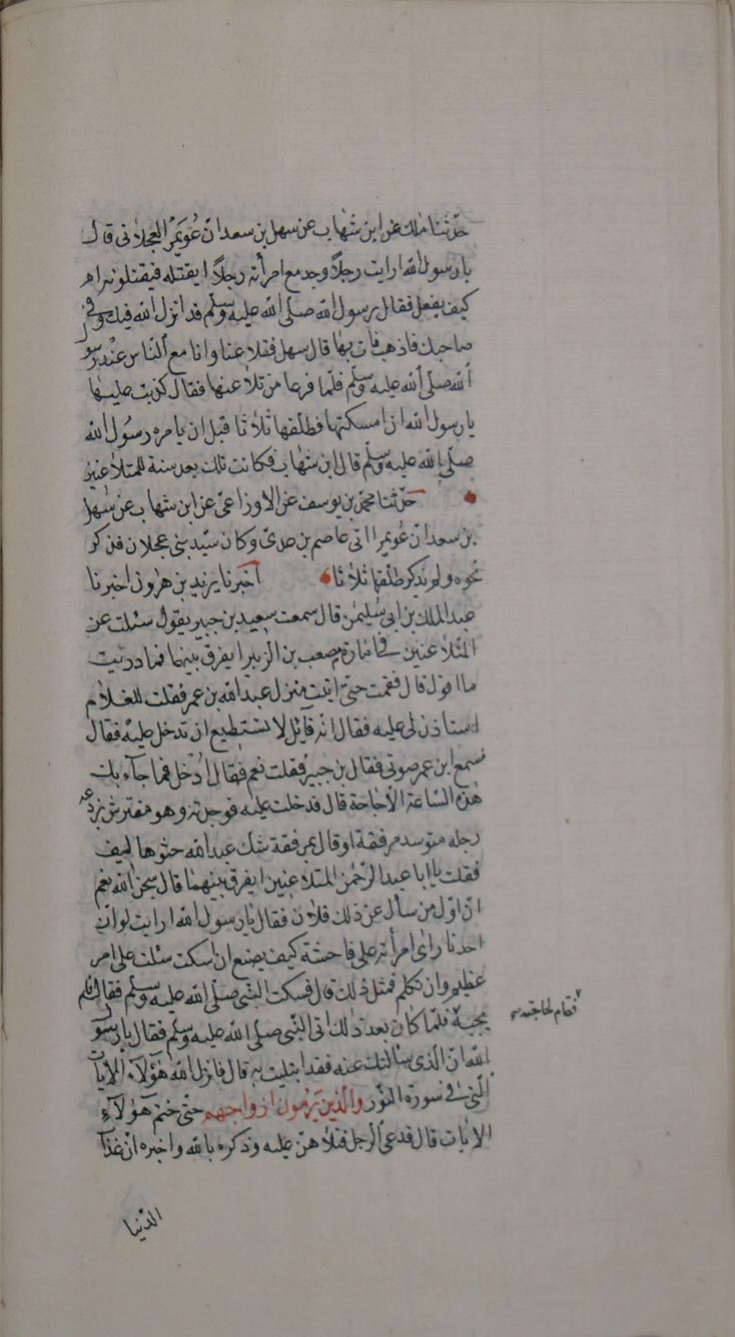 حدثنا ملك عن ابن شهاب عن سهل بن سعد ان عُوَيمر العجلانى قال
يا رسول الله ارايت رجلاً وجد مع امرأته رجلاً ايقتله فيقتلونه ام
كيف يفعل فقال رسول الله صلى الله عليه وسلم قد انزل الله فيك وفى
صاحبك فاذهب فات بها قال سهل فتلاعنا وانا مع الناس عند رسول
الله صلى الله عليه وسلم فلما فرغا من تلاعنهما فقال كذبت عليها
يا رسول الله ان امسكتها فطلقها ثلاثا قبل ان يامره رسول الله
صلى الله عليه وسلم قال ابن شهاب فكانت تلك بعد سنة للمتلاعنين
حدثنا محمد بن يوسف عن الاوزاعى عن ابن شهاب عن سهل
بن سعد ان عُويمرا اتى عاصم بن عدى وكان سيد بنى عجلان فذكر
نحوه ولم يذكر طلقها ثلاثا اخبرنا يزيد بن هرون اخبرنا
عبد الملك بن ابى سليمن قال سمعت سعيد بن جبير يقول سئلت عن
المتلاعنين فى امارة مصعب بن الزبير ايفرق بينهما فما دريت
ما اقول قال فقمت حتى اتيت منزل عبد الله بن عمر فقلت للغلام
استاذن لى عليه فقال انه قآئل لا تستطيع ان تدخل عليه فقال
فسمع ابن عمر صوتى فقال بن جبير فقلت نعم فقال ادخل فما جآء بك
هذه الساعة الا حاجة قال فدخلت عليه فوجدته وهو مفترش برذعه
رجله متوسد مرفقة او قال نمرقة شك عبد الله حشوها ليف
فقلت يا ابا عبد الرحمن المتلاعنين ايفرق بينهما قال سبحن الله نعم
ان اول من سأل عن ذلك فلان فقال يا رسول الله ارايت لو ان
احدنا راى امرأته على فاحشة كيف يصنع ان سكت سكت على امر
عظيم وان تكلم فمثل ذلك قال فسكت النبى صلى الله عليه وسلم فقال فلم
يجبه فلما كان بعد ذلك اتى النبى صلى الله عليه وسلم فقال يا رسول
الله ان الذى سألتك عنه فقد ابتليت به قال فانزل الله هؤلآء الايات
التى فى سورة النور والذين يرمون ازواجهم حتى ختم هؤلآء
الايات قال فدعى الرجل فتلاهن عليه وذكره بالله واخبره ان عذاب
فقام لحاجته
الدنيا